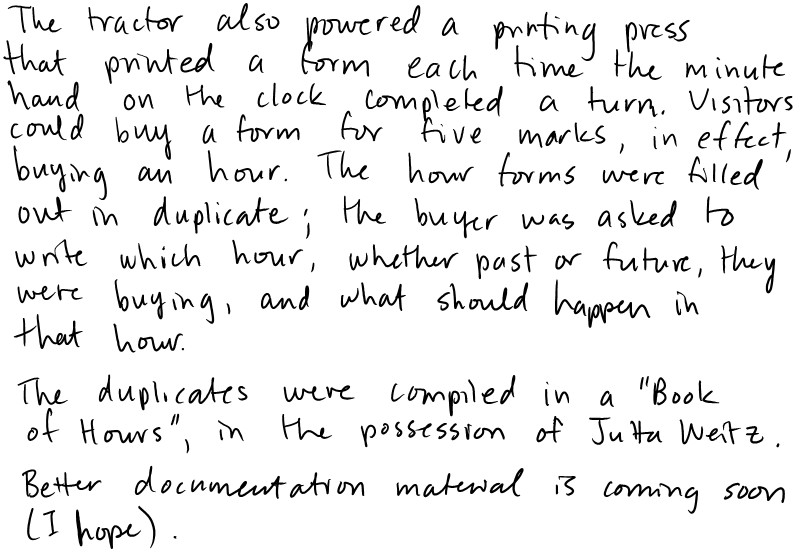 The tractor also powered a printing press
that printed a form each time the minute
hand on the clock completed a turn. Visitors
could buy a form for five marks, in effect,
buying an hour. The hour forms were filled
out in duplicate; the buyer was asked to
write which hour, whether past or future, they
were buying, and what should happen in
that hour.
The duplicates were compiled in a "Book
of Hours", in the possession of Jutta Weitz.
Better documentation material is coming soon
(I hope).